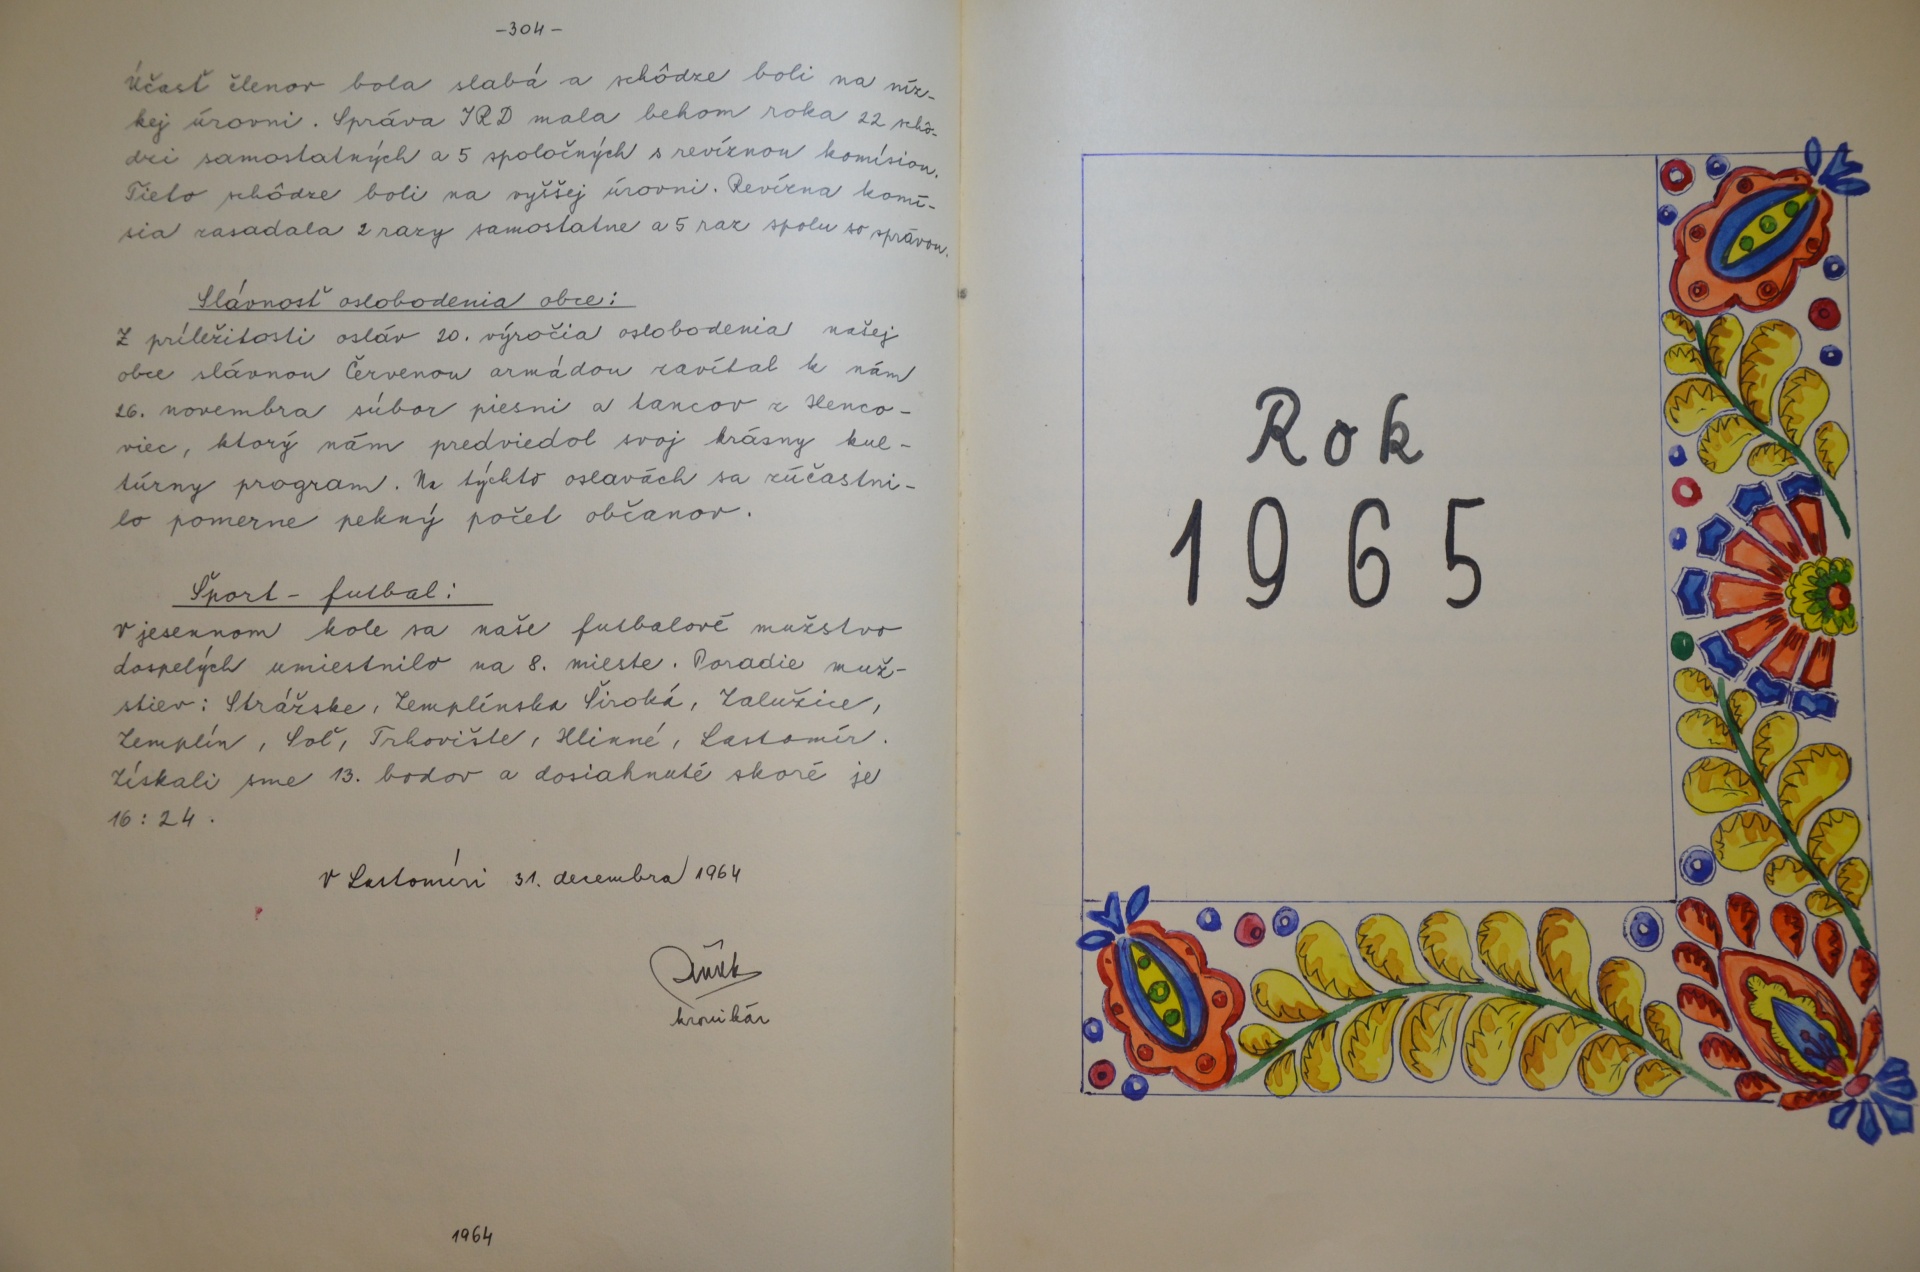 -304-
Účasť členov bola slabá a schôdze boli na níz-
kej úrovni. Správa JRD mala behom roka 22 schô-
dzi samostatných a 5 spoločných s revíznou komísiou.
Tieto schôdze boli na vyššej úrovni. Revízna komí-
sia zasadala 2 razy samostatne a 5 raz spolu so správou.
Slávnosť oslobodenia obce:
Z príležitosti osláv 20. výročia oslobodenia našej
obce slávnou Červenou armádou zavítal k nám
26. novembra súbor piesni a tancov z Henco-
viec, ktorý nám predviedol svoj krásny kul-
túrny program. Na týchto oslavách sa zúčastni-
lo pomerne pekný počet občanov.
Šport - futbal:
V jesennom kole sa naše futbalové mužstvo
dospelých umiestnilo na 8. mieste. Poradie muž-
stiev: Strážske, Zemplínska Široká, Zalužice,
Zemplín, Soľ, Trhovište, Hlinné, Lastomír.
Získali sme 13. bodov a dosiahnuté skoré je
16:24.
V Lastomíri 31. decembra 1964
kronikár
1964
Rok
1965